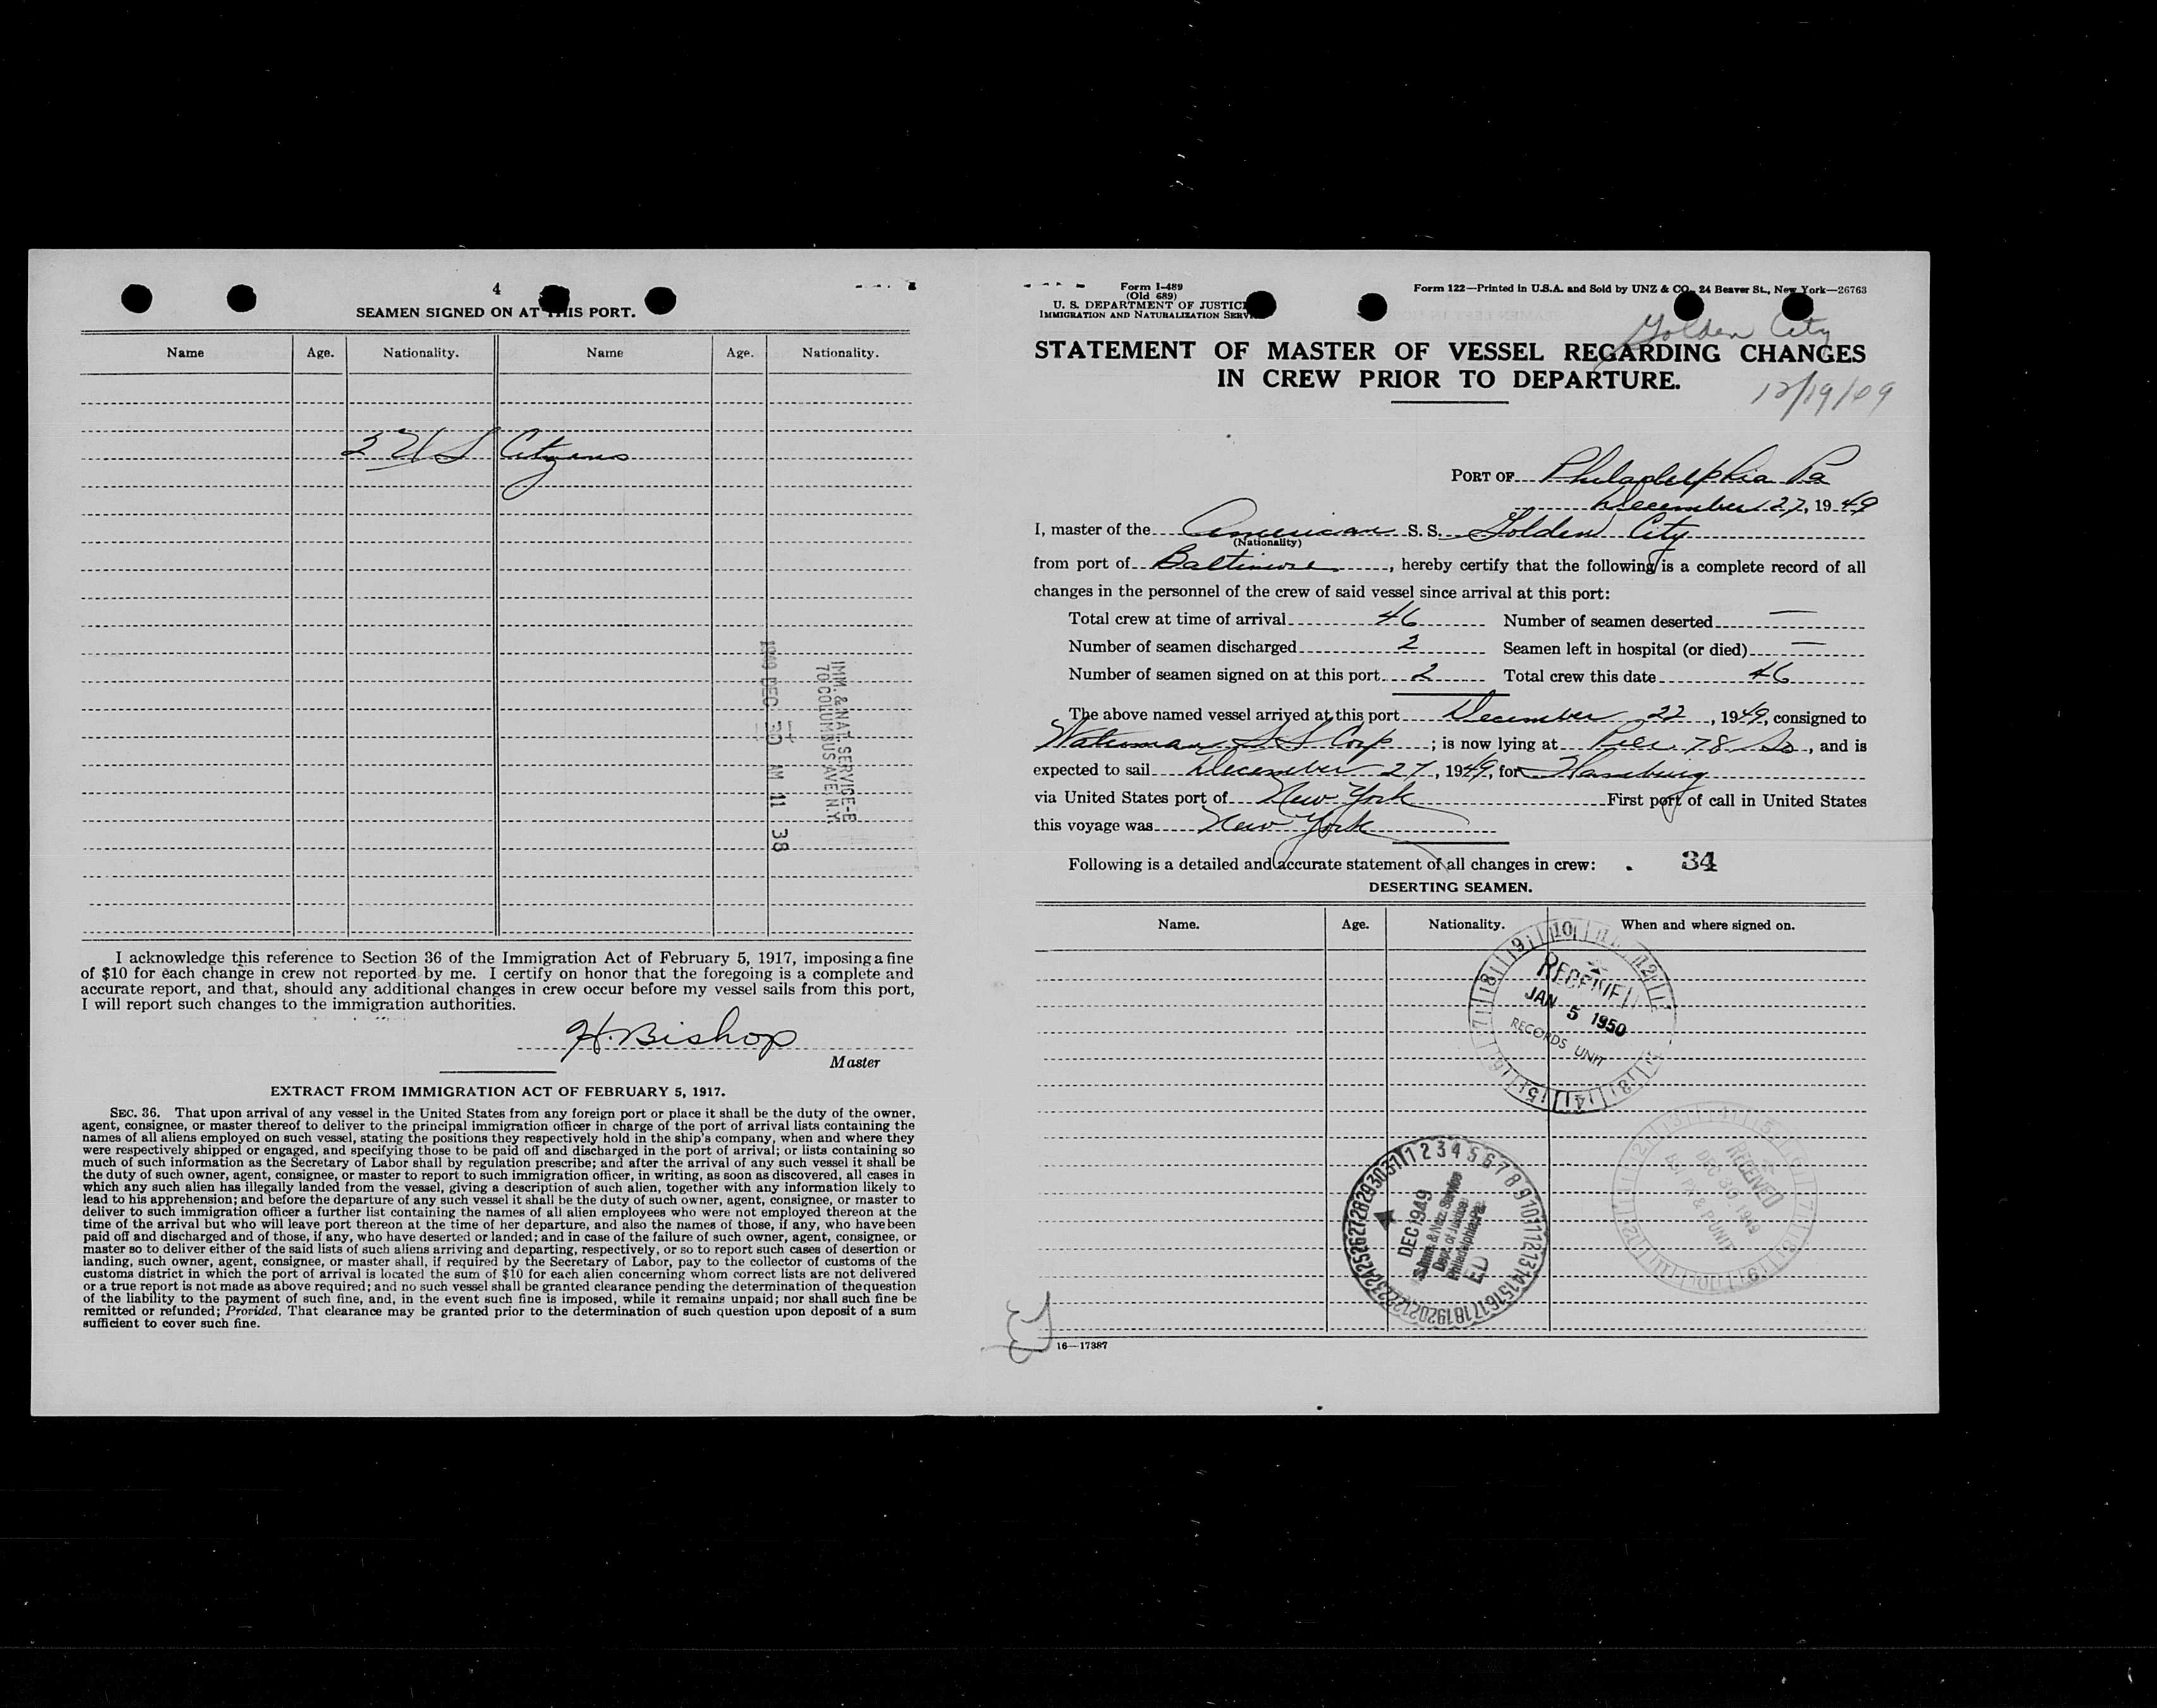 4
SEAMEN SIGNED ON AT THIS PORT.
Name Age. Nationality. Name Age. Nationality.
2 U S Citizens
IMM. & NAT. SERVICE-E
70 COLUMBUS AVE. N.Y.
1949 DEC 30 AM 11 38
I acknowledge this reference to Section 36 of the Immigration Act of February 5, 1917, imposing a fine
of $10 for each change in crew not reported by me. I certify on honor that the foregoing is a complete and
accurate report, and that, should any additional changes in crew occur before my vessel sails from this port,
I will report such changes to the immigration authorities.
H. Bishop
Master
EXTRACT FROM IMMIGRATION ACT OF FEBRUARY 5, 1917.
SEC. 36. That upon arrival of any vessel in the United States from any foreign port or place it shall be the duty of the owner,
agent, consignee, or master thereof to deliver to the principal immigration officer in charge of the port of arrival lists containing the
names of all aliens employed on such vessel, stating the positions they respectively hold in the ship's company, when and where they
were respectively shipped or engaged, and specifying those to be paid off and discharged in the port of arrival; or lists containing so
much of such information as the Secretary of Labor shall by regulation prescribe; and after the arrival of any such vessel it shall be
the duty of such owner, agent, consignee, or master to report to such immigration officer, in writing, as soon as discovered, all cases in
which any such alien has illegally landed from the vessel, giving a description of such alien, together with any information likely to
lead to his apprehension; and before the departure of any such vessel it shall be the duty of such owner, agent, consignee, or master to
deliver to such immigration officer a further list containing the names of all alien employees who were not employed thereon at the
time of the arrival but who will leave port thereon at the time of her departure, and also the names of those, if any, who have been
paid off and discharged and of those, if any, who have deserted or landed; and in case of the failure of such owner, agent, consignee, or
master so to deliver either of the said lists of such aliens arriving and departing, respectively, or so to report such cases of desertion or
landing, such owner, agent, consignee, or master shall, if required by the Secretary of Labor, pay to the collector of customs of the
customs district in which the port of arrival is located the sum of $10 for each alien concerning whom correct lists are not delivered
or a true report is not made as above required; and no such vessel shall be granted clearance pending the determination of the question
of the liability to the payment of such fine, and, in the event such fine is imposed, while it remains unpaid; nor shall such fine be
remitted or refunded; Provided, That clearance may be granted prior to the determination of such question upon deposit of a sum
sufficient to cover such fine.
Form I-489
(Old 689)
U. S. DEPARTMENT OF JUSTICE
IMMIGRATION AND NATURALIZATION SERVICE
Form 122—Printed in U.S.A. and Sold by UNZ & CO., 24 Beaver St., New York—26763
Golden City
STATEMENT OF MASTER OF VESSEL REGARDING CHANGES
IN CREW PRIOR TO DEPARTURE.
12/19/49
PORT OF Philadelphia Pa
December 27, 1949
I, master of the American S. S. Golden City
(Nationality)
from port of Baltimore, hereby certify that the following is a complete record of all
changes in the personnel of the crew of said vessel since arrival at this port:
Total crew at time of arrival 46 Number of seamen deserted —
Number of seamen discharged 2 Seamen left in hospital (or died) —
Number of seamen signed on at this port 2 Total crew this date 46
The above named vessel arrived at this port December 22, 1949, consigned to
Waterman S S Corp; is now lying at Pier 78 So, and is
expected to sail December 27, 1949, for Hamburg
via United States port of New York First port of call in United States
this voyage was New York
Following is a detailed and accurate statement of all changes in crew: 34
DESERTING SEAMEN.
Name. Age. Nationality. When and where signed on.
RECEIVED
JAN 5 1950
RECORDS UNIT
RECEIVED
DEC 30 1949
DEC 1949
Imm. & Natz. Service
Dept. of Justice
Philadelphia, Pa.
ED
16—17387